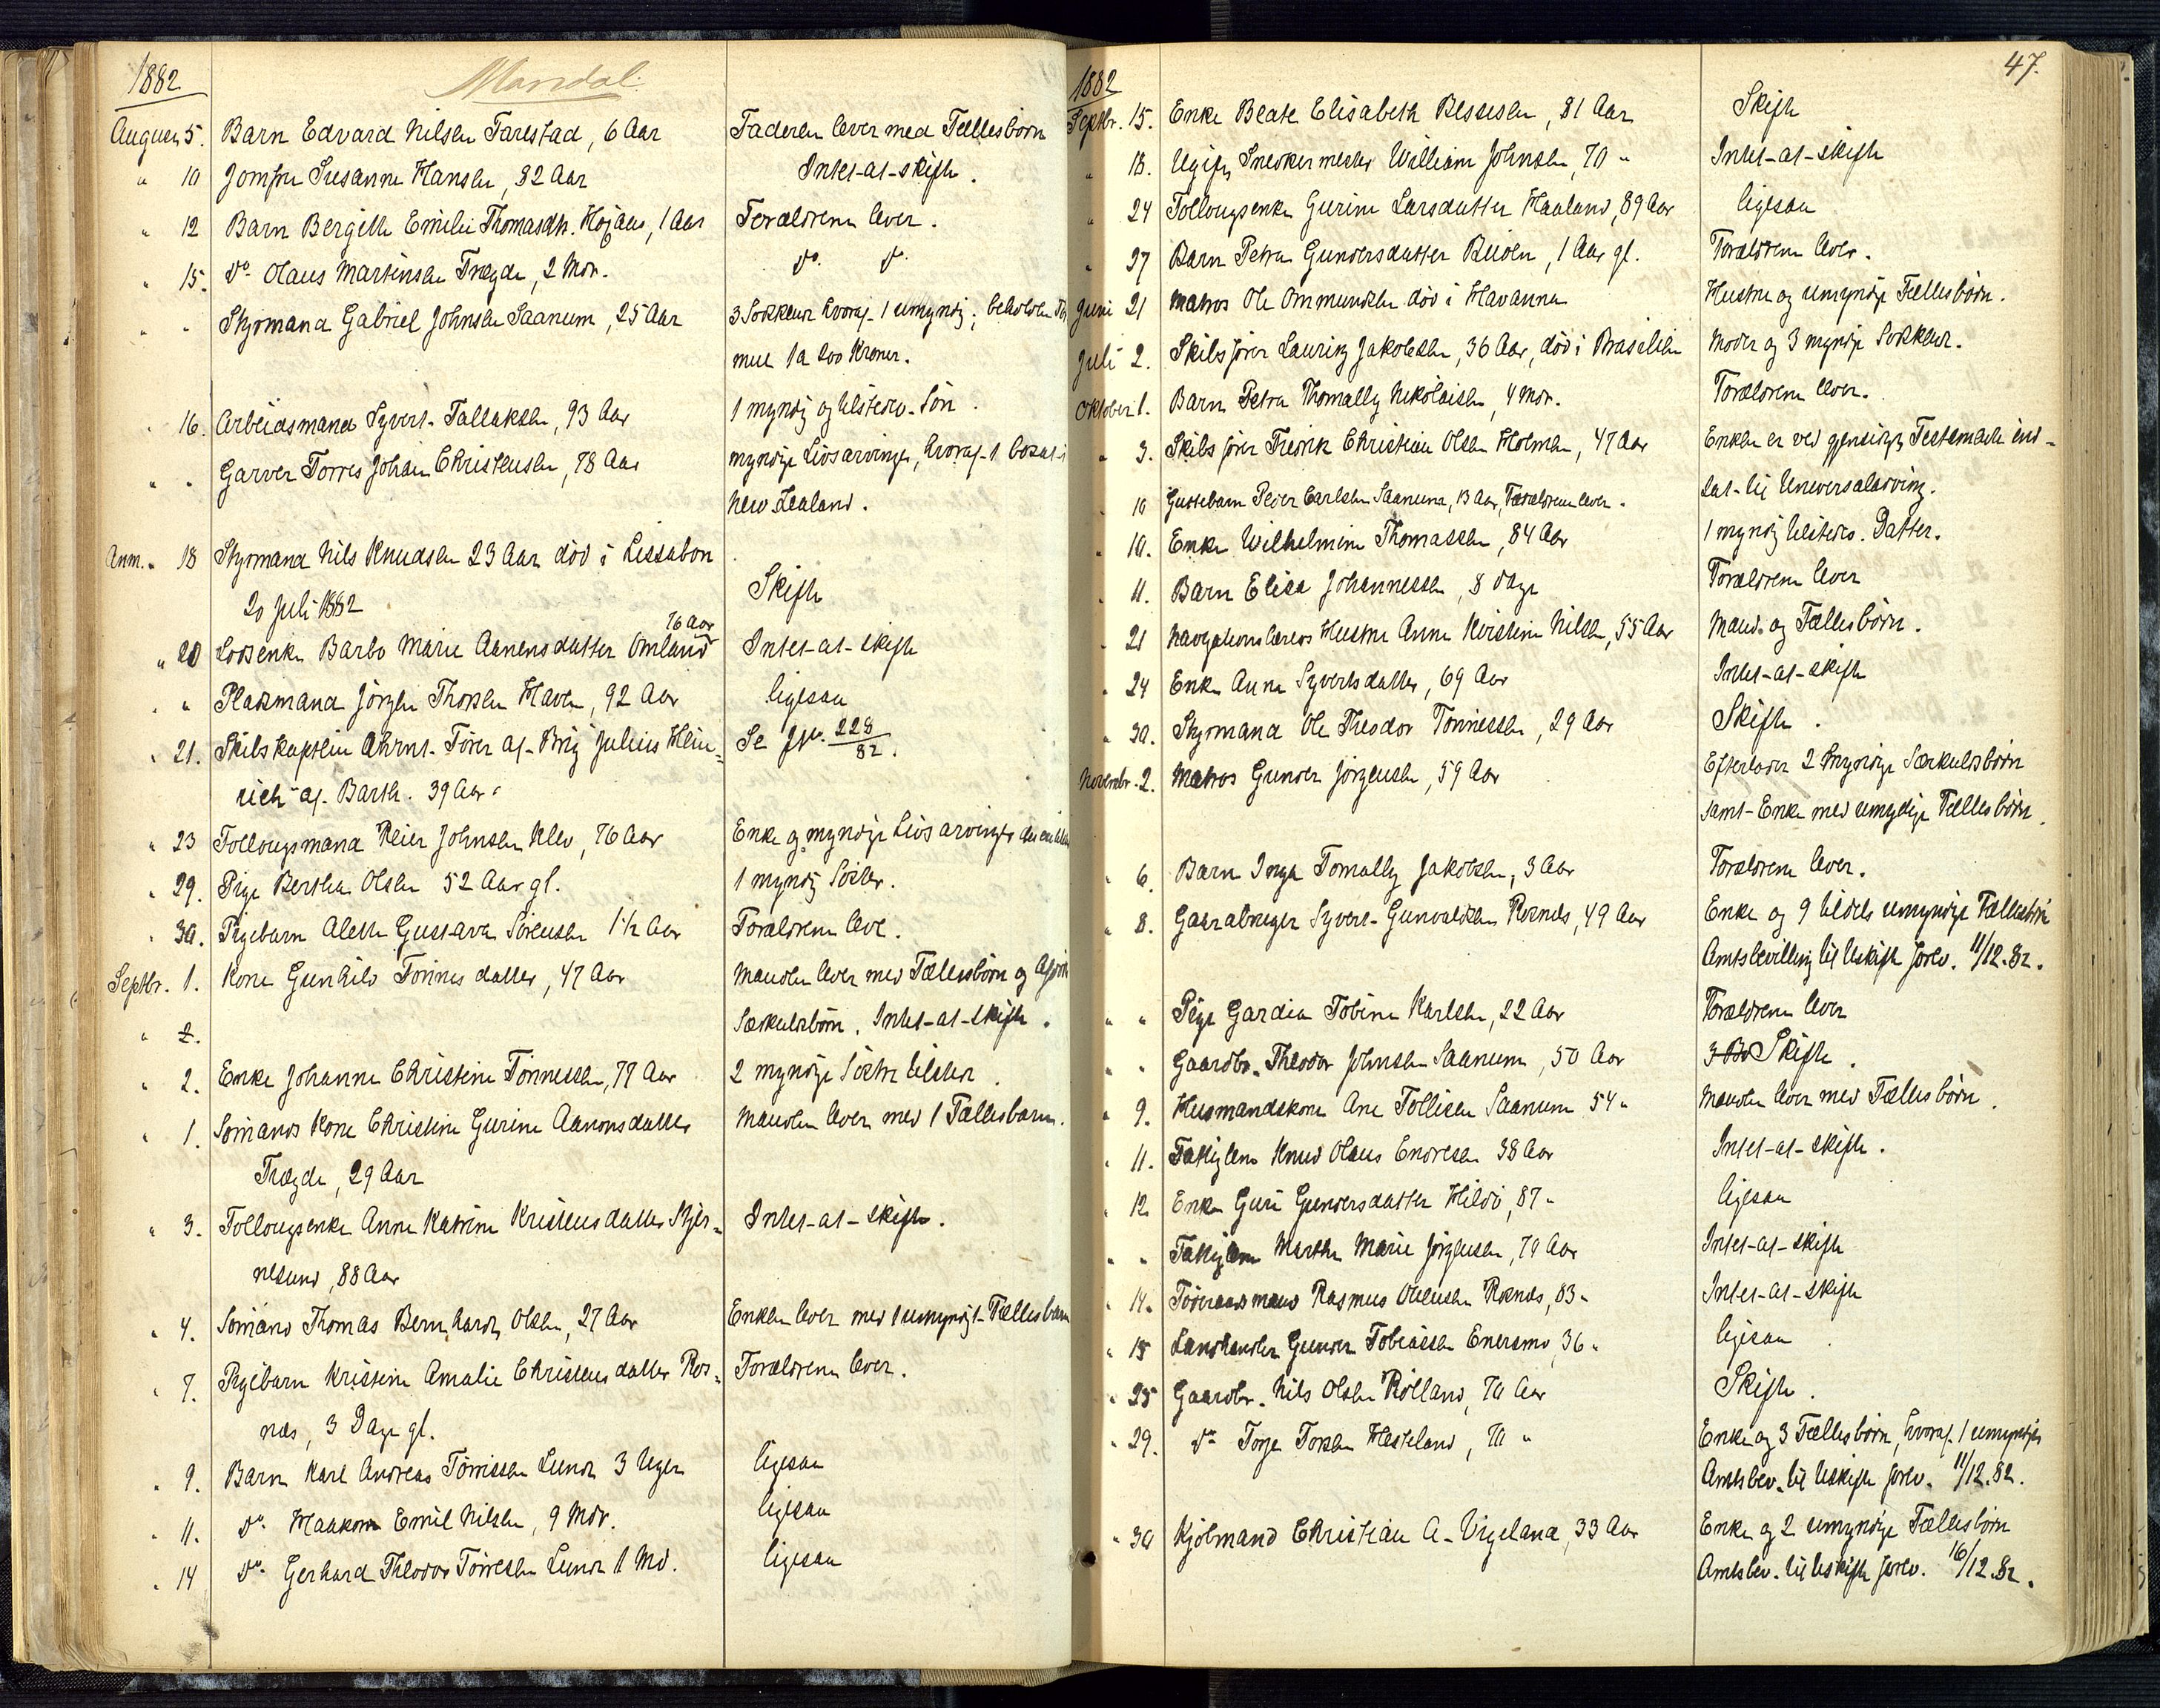 1882 Mandal.
August 5. Barn Edvard Nilsen Farestad, 6 Aar Faderen lever med Fællesbörn
" 10 Jomfru Susanne Hansen, 82 Aar Intet at skifte.
" 12 Barn Bergitte Emilie Thomasdtr. Höjaas, 1 Aar Forældrene lever.
" 15. do Olaus Martinsen Trægde, 2 Mdr. do. do.
" " Styrmand Gabriel Johnsen Saanum, 25 Aar 3 Södskende hvoraf 1 umyndig; beholden For
mue 1 à 200 Kroner.
" 16. Arbeidsmand Syvert Tallaksen, 93 Aar 1 myndig og tilstedev. Sön.
" " Garver Torres Johan Christensen, 78 Aar myndige Livsarvinger, hvoraf 1 bosat i
New Zealand.
Anm. " 18 Styrmand Nils Knudsen 23 Aar död i Lissabon
20 Juli 1882 Skifte
76 Aar
" 20 Lodsenke Barbo Marie Aanensdatter Omland Intet at skifte
" " Pladsmand Jörgen Thorsen Haven, 92 Aar ligesaa
" 21. Skibskaptein Ahrns. Förer af Brig Julius Hein- Se Jr. 228/82.
rich af Barth. 39 Aar.
" 23 Follougsmand Reier Johnsen Klev, 76 Aar Enke og myndige Livsarvinger
" 29. Pige Bertha Olsen 52 Aar gl. 1 myndig Söster.
" 30. Pigebarn Aleth Gustava Sörensen 1½ Aar Forældrene leve.
Septbr. 1. Kone Gunhild Tönnesdatter, 47 Aar Manden lever med Fællesbörn og
" 2. Særkuldsbörn. Intet at skifte.
" 2. Enke Johanne Christine Tönnessen, 77 Aar 2 myndige Söstre tilstede.
" 1. Sömands Kone Christine Gurine Aanonsdatter Manden lever med 1 Fællesbarn.
Trægde, 29 Aar
" 3. Follougsenke Anne Katrine Kristensdatter Skjer- Intet at skifte.
nesund, 88 Aar
" 4. Sömand Thomas Bernhardt Olsen, 27 Aar Enken lever med 1 umyndigt Fællesbarn
" 7. Pigebarn Kristine Amalie Christensdatter Ros- Forældrene lever.
næs, 3 Dage gl.
" 9. Barn Karl Andreas Tönnessen Lunde 3 Uger ligesaa
" 11. do. Haakon Emil Nilsen, 9 Mdr. ligesaa
" 14 do. Gerhard Theodor Torresen Lunde 1 Md. ligesaa
47.
1882
Septbr. 15. Enke Beate Elisabeth Bessesen, 81 Aar Skifte
" 18. Ugift Snedkermester William Johnsen, 70 " Intet at skifte
" 24 Follougsenke Gurine Larsdatter Haaland, 89 Aar ligesaa
" 27 Barn Petra Gundersdatter Buöen, 1 Aar gl. Forældrene lever.
Juni 21 Matros Ole Ommundsen död i Havanna Hustru og umyndige Fællesbörn.
Juli 2. Skibsförer Lauritz Jakobsen, 36 Aar, död i Brasilien Moder og 3 myndige Södskende.
Oktober 1. Barn Petra Thomally Nikolaisen, 4 Mdr. Forældrene lever.
" 3. Skibsförer Fredrik Christian Olsen Holmen, 47 Aar Enken er ved gjensidigt Testamente ind-
" 10 Guttebarn Peder Carlsen Saanum, 13 Aar, Forældrene lever. sat til Universalarving.
" 10. Enke Wilhelmine Thomassen, 84 Aar 1 myndig tilstedev. Datter.
" 11. Barn Elisa Johannessen, 8 dage Forældrene lever
" 21 Navigationslærers Hustru Anne Kirstine Nilsen, 55 Aar Mand og Fællesbörn.
" 24 Enke Anne Syvertsdatter, 69 Aar Intet at skifte
" 30. Styrmand Ole Theodor Tönnessen, 29 Aar Skifte.
Novembr. 2. Matros Gunder Jörgensen, 59 Aar Efterlader 2 myndige Særkuldsbörn
samt Enke med umyndige Fællesbörn.
" 6. Barn Inga Tomally Jakobsen, 3 Aar Forældrene lever.
" 8. Gaardbruger Syvert Gunvaldsen Rosnæs, 49 Aar Enke og 9 tildels umyndige Fællesbörn
Amtsbevilling til Uskifte forev. 11/12.82.
" " Pige Gardia Tobine Karlsen, 22 Aar Forældrene lever
" " Gaardbr. Theodor Johnsen Saanum, 50 Aar 3 Bö Skifte.
" 9. Husmandskone Ane Tollisen Saanum 54 " Manden lever med Fællesbörn.
" 11. Fattiglem Knud Olaus Endresen 38 Aar Intet at skifte.
" 12. Enke Guri Gundersdatter Hildö, 87 " ligesaa
" " Fattiglem Marthe Marie Jörgensen, 79 Aar Intet at skifte
" 14. Föderaadsmand Rasmus Olleusen Rosnæs, 83 " Intet at skifte
" 15 Landhandler Gunder Tobiassen Enersmo, 36 " ligesaa
" 25 Gaardbr. Nils Olsen Rölland, 70 Aar Skifte.
" 29. do Torje Torsen Hesteland, 70 " Enke og 3 Fællesbörn, hvoraf 1 umyndigt
Amtsbev. til Uskifte forev. 11/12.82.
" 30 Kjöbmand Christian A. Vigeland, 33 Aar Enke og 2 umyndige Fællesbörn
Amtsbev. til Uskifte forev. 16/12.82.